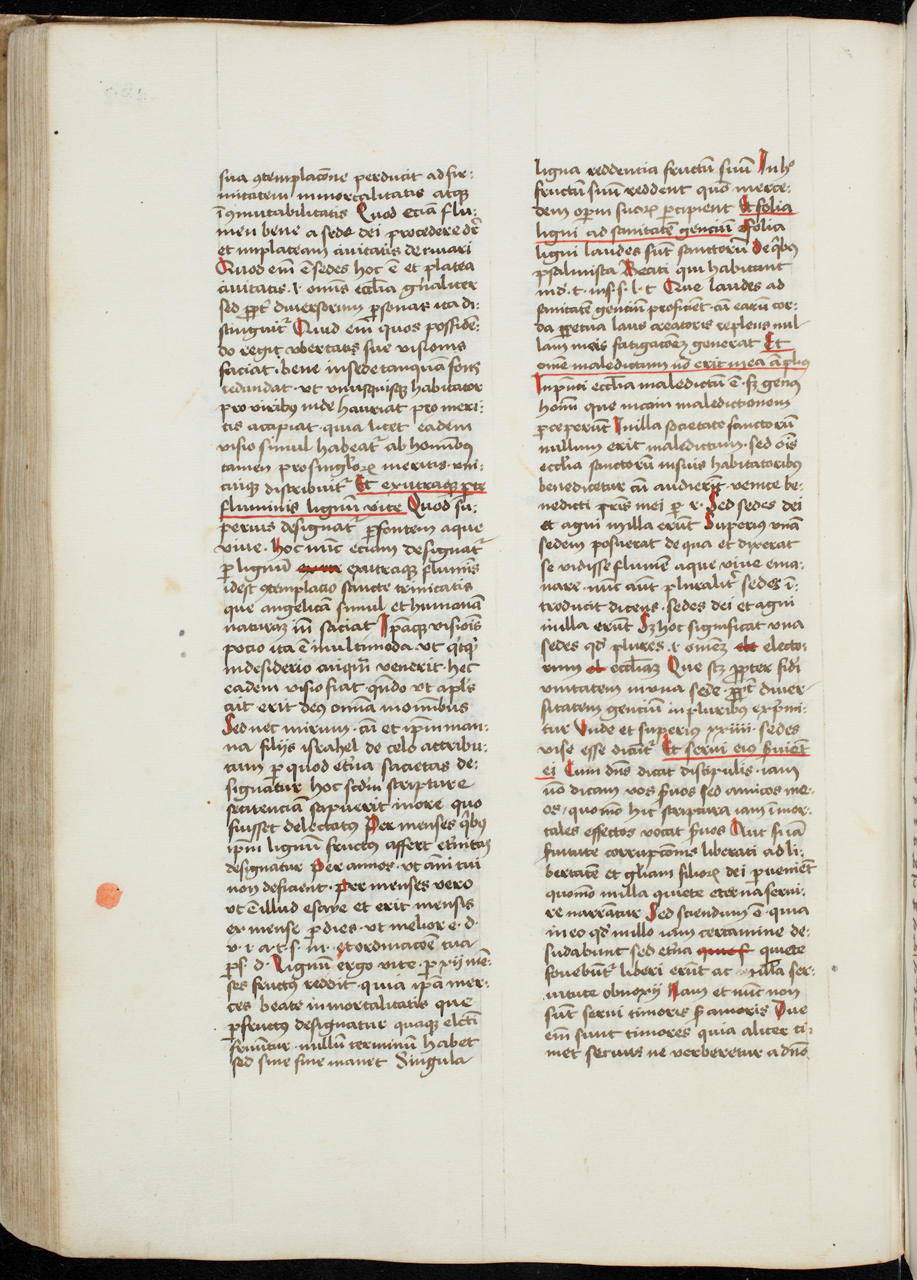 sua ꝯtemplacōne perducit ad fir-
mitatem immortalitatis atqꝫ
īꝯmutabilitatis Quod eciā flu-
men bene a sede dei procedere dr̄
et in plateam ciuitatis deriuari
Quod em̄ ē sedes hoc ē et platea
ciuitatis .i. omīs eccl̄ia gn̄aliter
sed ꝓpt̄ diuersorum ꝑsonas ita di-
stinguit᷑ Quid em̄ quos possidē-
do regit vbertatis sue visionis
saciat. bene in sede tanquā fons
redundat. vt vnusquisqꝫ habitator
pro virib9 inde hauriat pro meri-
tis accipiat. quia licet eadem
visio simul habeat᷑ ab hominib9
tamen pro singl̄orꝫ meritis. vni-
cuiqꝫ distribuit᷑ Et ex vtraqꝫ ꝑte
fluminis lignum vite Quod su-
perius designat᷑ ꝑ fontem aque
viue. hoc nunc eciam designat᷑
ꝑ lignū ex vtraqꝫ ꝑ fluminis
idest ꝯtemplacio sancte trinitatis
que angelicā simul et humanā
naturaꝫ in saciat Ipaqꝫ visiōis
pocio ita ē multimoda vt qͥcqͥd
in desiderio cuiqͣm venerit. hec
eadem visio fiat. qn̄do vt apl̄s
ait erit deꝯ omnīa in omnibus
Sed nec mirum. cū et ip̄m man-
na filijs israhel de celo attribu-
tum ꝑ quod et̄na sacietas de-
signatur hoc scdm̄ scripture
sentenciā sapuerit in ore quo
fuisset delectatꝯ Per menses qͥbꝯ
ip̄m lignum fructꝯ affert et̄nitas
designatur Per annos. vt anni tui
non deficient. Per menses vero
vt ē illud esaye et erit mensis
ex mense ꝑ dies. vt melior e. d.
v. i. a. t. s. m. et ordinacōe tua
ꝑs. d. Lignum ergo vite. ꝑ xij mē-
ses fructꝯ reddit. quia ip̄a mer-
ces beate inmortalitatis que
ꝑ fructꝯ designatur quaqꝫ elc̄ti
fruuntur. nullum terminū habet
sed sine fine manet Singula
ligna reddentia fructū suū In hͦ
fructū suū reddent quō merce-
dem opeꝝ suorꝫ ꝑcipient Et folia
ligni ad sanitatē genciū Folia
ligni laudes sūt sanctorū De qͥbꝯ
psalmista Beati qui habitant
in d. t. in s. s. l. t Que laudes ad
sanitatē genciū proficiēt. cū earū cor-
da ꝑpetua laus creatoris replens nul-
lam meis fatigacōem generat Et
om̄e maledictum nō erit in ea ampliꝯ
In pn̄ti eccl̄ia maledictū ē. sꝫ genꝯ
homī que in cain maledictionem
ꝑceperunt In illa societate sanctorū
nullum erit maledictum. sed oīs
eccl̄ia sanctorū in suis habitatoribꝯ
benedicetur cū audierīt. venite be-
nedicti pr̄is mei ꝑ. r. Sed sedes dei
et agni in illa erūt Superiꝯ vnā
sedem posuerat de qua et dixerat
se vidisse flumē aque viue ema-
nare. nūc aūt pluralit̄ sedes ī-
troducit dicens. sedes dei et agni
in illa erūt Sꝫ hoc significat vna
sedes qd̄ plures .i. omēꝫ electo-
rum eccl̄iaꝫ Que scꝫ ꝓpter fidī
vnitatem in vna sede. ꝓpt̄ diuer-
sitatem genciū in pluribus expri-
tur Vnde et superiꝯ xxiiii. sedes
vise esse dicūt᷑ Et serui eiꝯ ẜuiēt
ei Cum dn̄s dicat discipulis. iam
nō dicam vos ẜuos sed amicos me-
os. quomō hic scriptura iam īmor-
tales effectos vocat ẜuos Aut si iā
ẜuitute corrupcōnis liberati ad li-
bertatē et gl̄iam filiorꝫ dei ꝑuenīēt
quomō in illa quiete eterna serui-
re narrātur Sed sciendum ē. quia
in eo qd̄ nullo iam certamine de-
sudabunt sed et̄na quiete
fouebūt᷑ liberi erūt ac nulla ser-
uitute obnoxij Nam et nūc non
sūt serui timoris s; amoris Due
em̄ sunt timores quia aliter ti-
met seruus ne verberetur a dn̄o